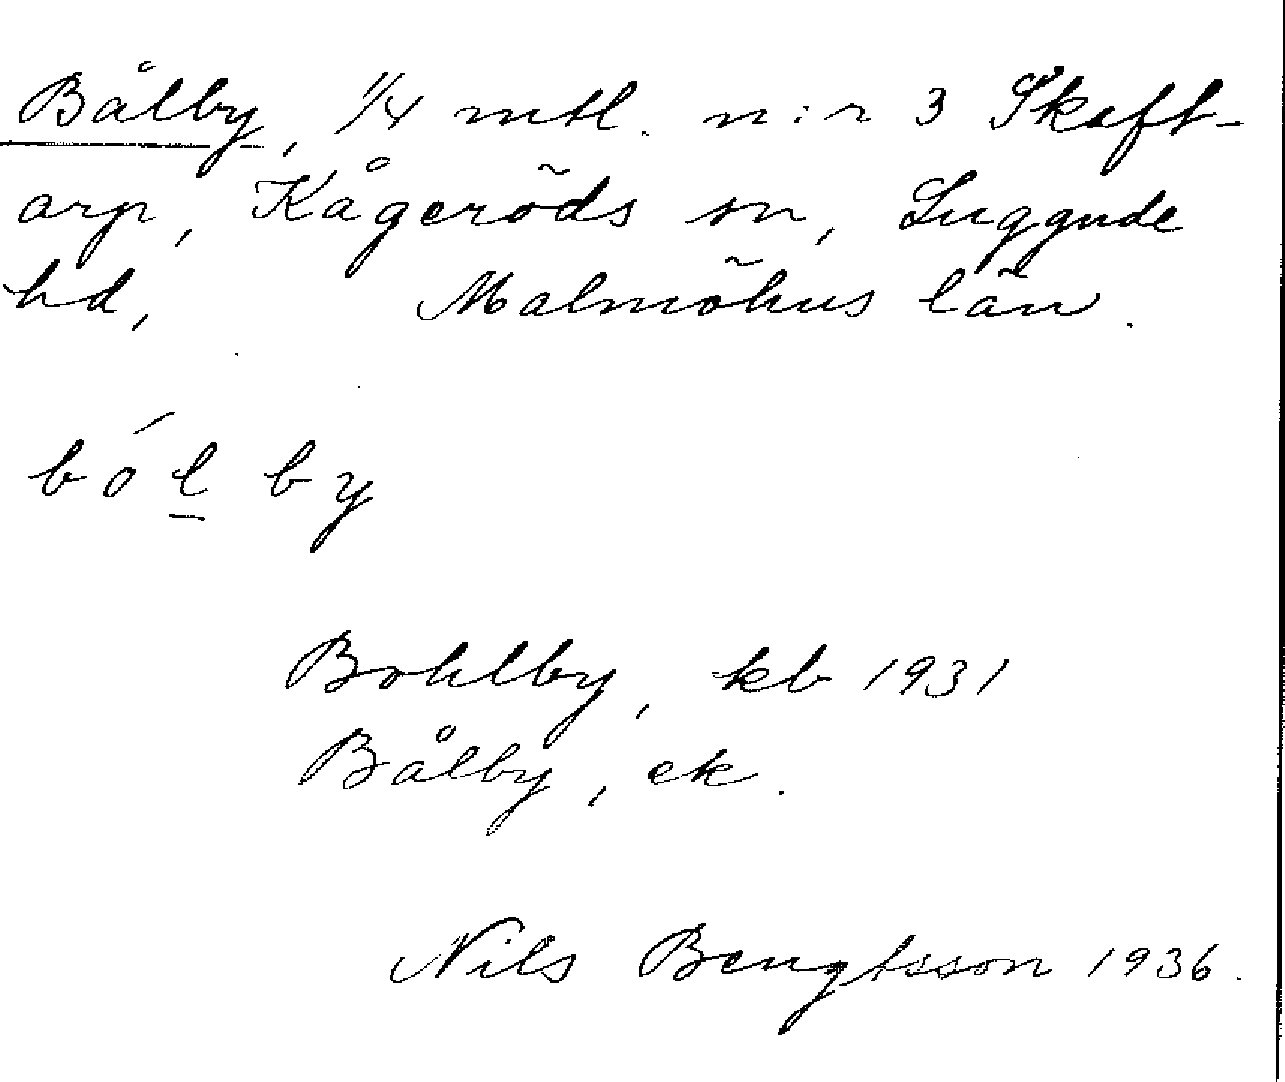 Bålby, 1/4 mtl. n:r 3 Skaft-
arp, Kågeröds sn, Luggude
hd, Malmöhus län.
bó́l̲ by
Bohlby, kb 1931
Bålby, ek.
Nils Bengtsson 1936.